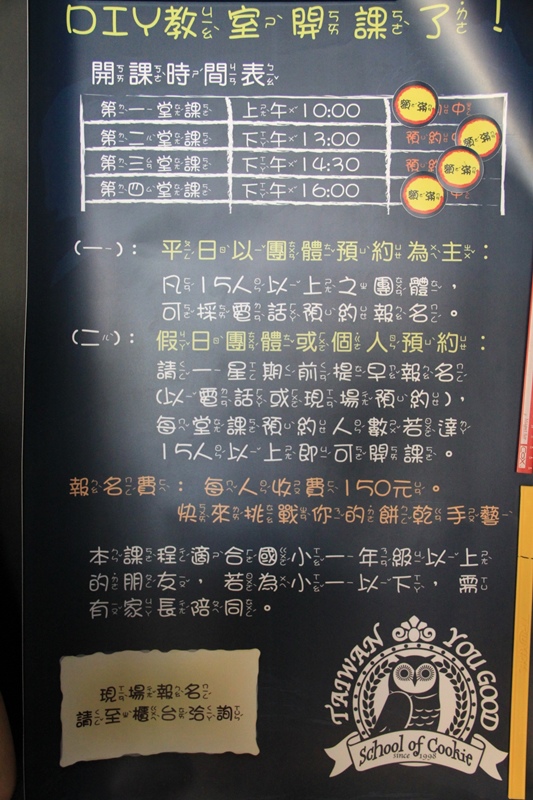 DIY教室開課了！
開課時間表
第一堂課 上午10:00 額滿 中
第二堂課 下午13:00 預約中 額滿
第三堂課 下午14:30 預約 額滿
第四堂課 下午16:00 額滿 中
(一)：平日以團體預約為主：
凡15人以上之團體，
可採電話預約報名。
(二)：假日團體或個人預約：
請一星期前提早報名
(以電話或現場預約)，
每堂課預約人數若達
15人以上即可開課。
報名費：每人收費150元。
快來挑戰你的餅乾手藝
本課程適合國小一年級以上
的朋友，若為小一以下，需
有家長陪同。
現場報名
請至櫃台洽詢
TAIWAN YOU GOOD
School of Cookie
since 1998